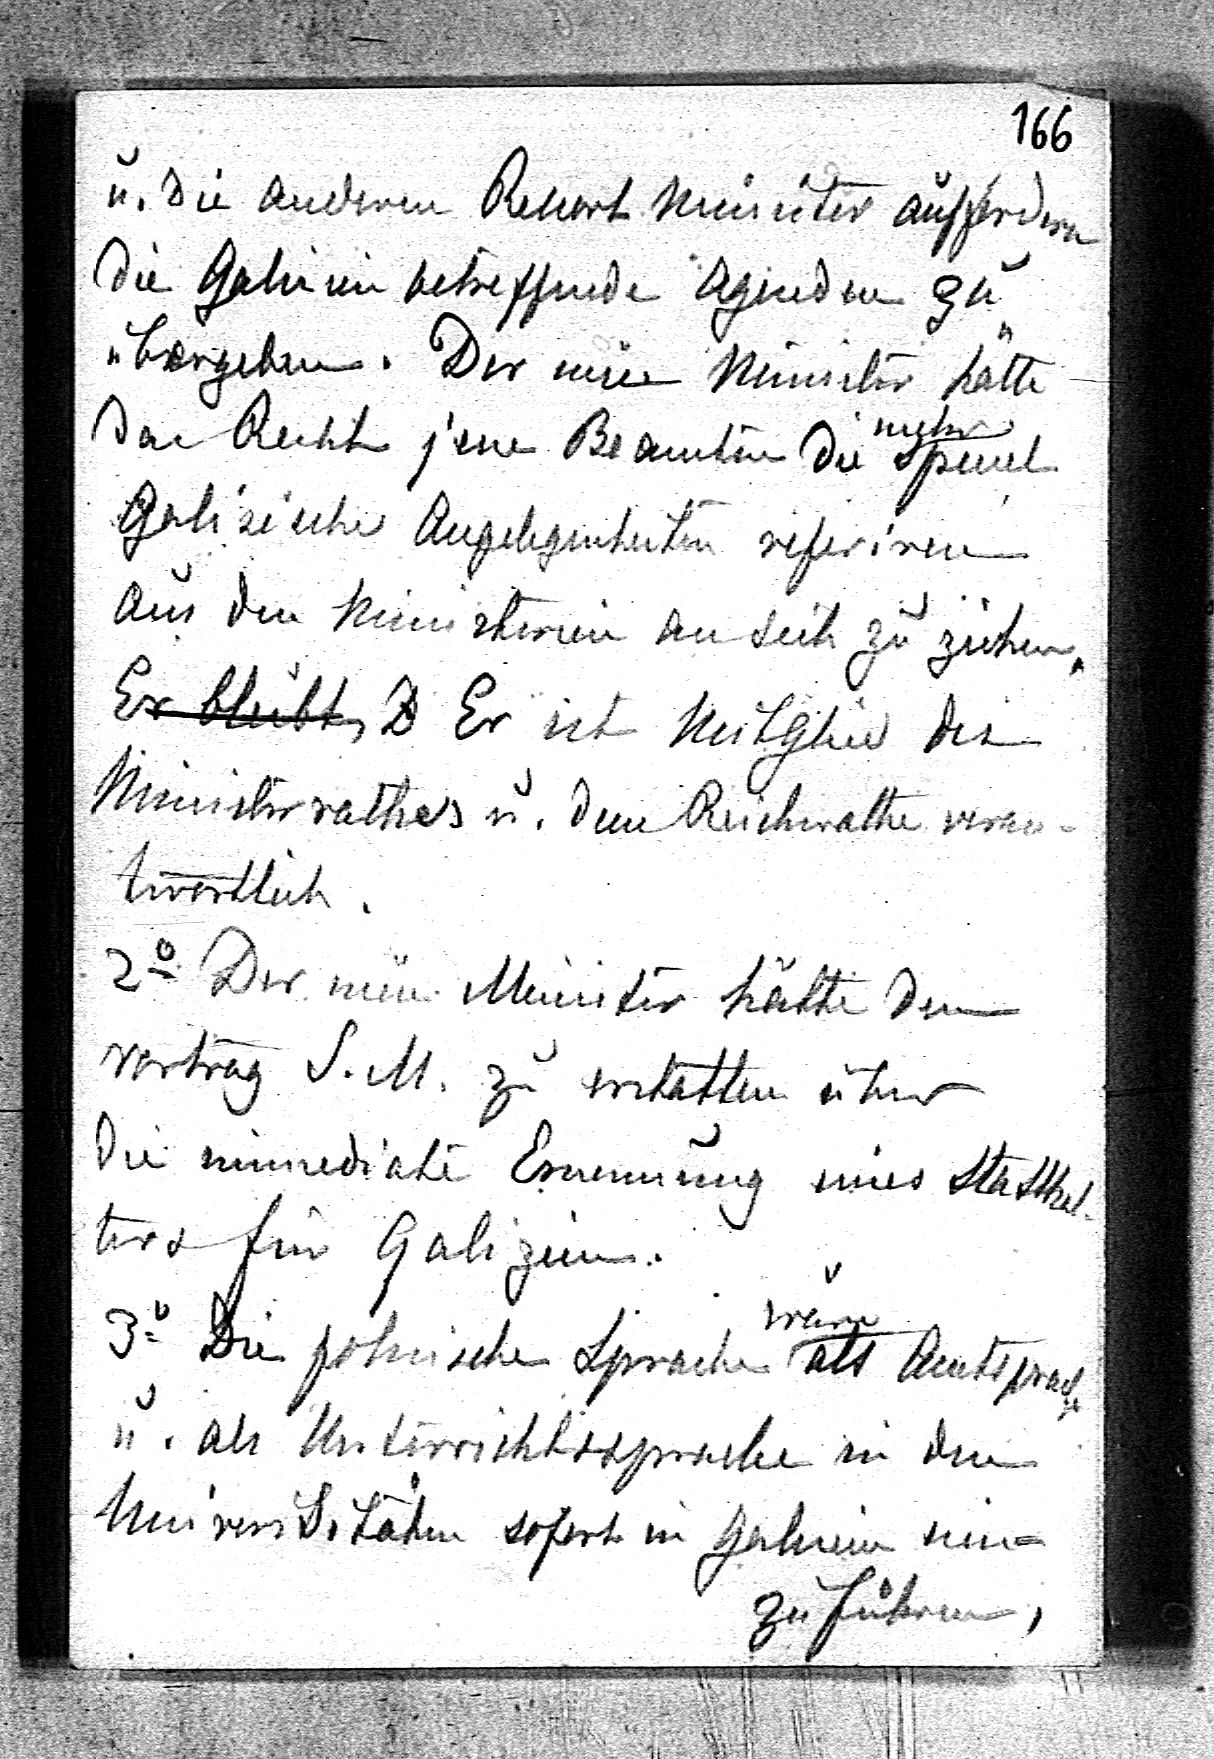 166
u. die anderen Ressort Minister auffordern
die Galizien betreffende Agenden zu
übergeben. Der neue Minister hätte
das Recht jene Beamten die mehr speciel
Galizische Angelegenheiten referiren
aus den Ministerien an sich zu ziehen.
Er bleibt, D Er ist Mitglied des
Ministerrathes u. dem Reichsrathe veran-
twortlich.
2o Der neue Minister hätte den
Vortrag S. M. zu erstatten über
die immediate Ernennung eines Statthal-
ters für Galizien.
3o Die polnische Sprache wäre als Amtssprache
u. als Unterrichtssprache in den
Universitäten sofort in Galizien ein-
zuführen,